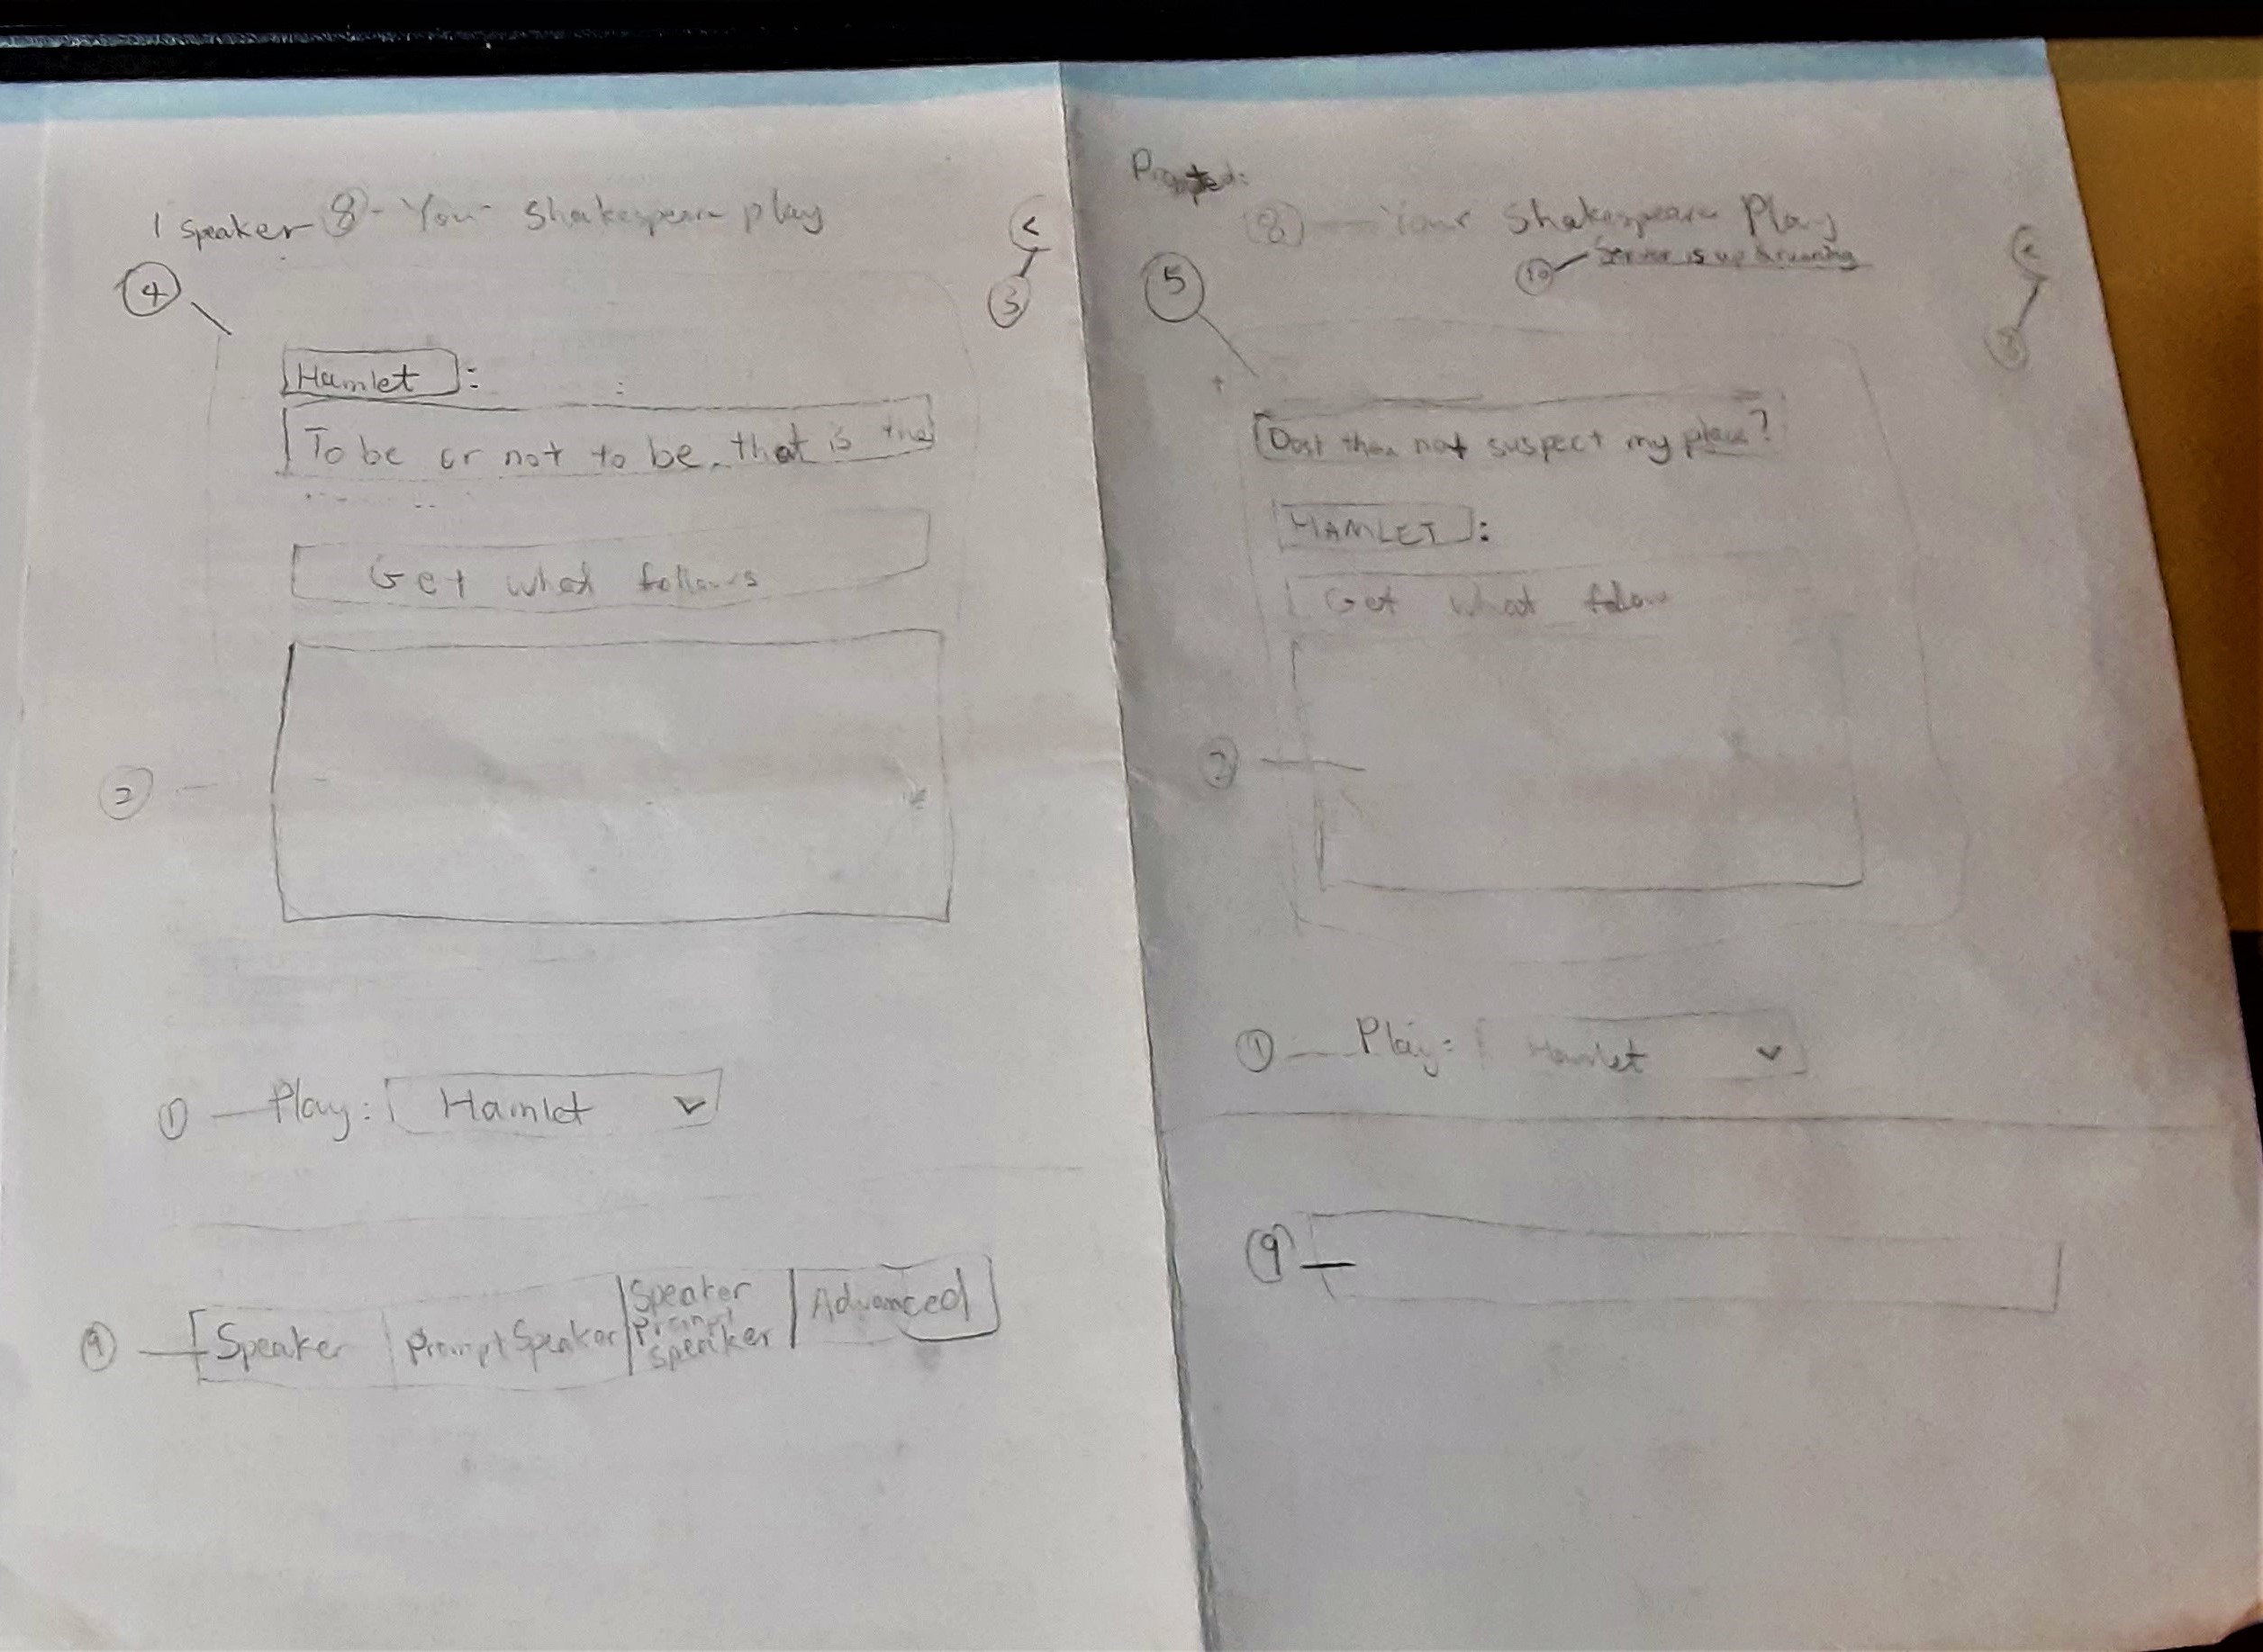 1 Speaker 8 - Your Shakespeare play
<
3
4
Hamlet :
To be or not to be, that is the
Get what follows
2
1 Play: Hamlet
9 Speaker Prompt Speaker Speaker Prompt Speaker Advanced
Prompted:
8 Your Shakespeare Play
10 Server is up & running
<
3
5
Dost thou not suspect my place?
HAMLET :
Get what follow
2
1 Play: Hamlet
9